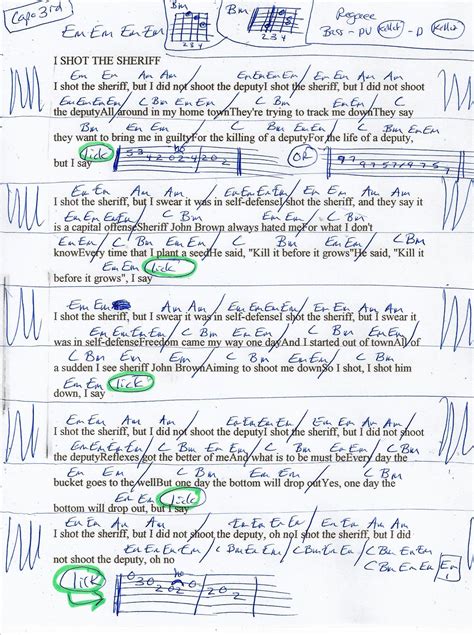 Capo 3rd
Em Em Em Em
Bm
2 3 4
Bm
2 3 4
Reggae
Bass - DU
I SHOT THE SHERIFF
Em Em Am Am Em Em Em Em Em Em Am Am
I shot the sheriff, but I did not shoot the deputyI shot the sheriff, but I did not shoot
Em Em Em Em C Bm Em Em C Bm Em Em
the deputyAll around in my home townThey're trying to track me downThey say
C Bm Em Em C Bm Em Em C Bm Em Em
they want to bring me in guiltyFor the killing of a deputyFor the life of a deputy,
but I say
lick
OR
Em Em Am Am Em Em Em Em Em Em Am Am
I shot the sheriff, but I swear it was in self-defenseI shot the sheriff, and they say it
Em Em Em Em C Bm Em Em C Bm
is a capital offenseSheriff John Brown always hated meFor what I don't
Em Em C Bm Em Em C Bm Em Em C Bm
knowEvery time that I plant a seedHe said, "Kill it before it grows"He said, "Kill it
Em Em lick
before it grows", I say
Em Em Am Am Em Em Em Em Em Em Am Am
I shot the sheriff, but I swear it was in self-defenseI shot the sheriff, but I swear it
Em Em Em Em C Bm Em Em C Bm Em Em
was in self-defenseFreedom came my way one dayAnd I started out of townAll of
C Bm Em Em C Bm Em Em C Bm
a sudden I see sheriff John BrownAiming to shoot me downSo I shot, I shot him
Em Em lick
down, I say
Em Em Am Am Em Em Em Em Em Em Am Am
I shot the sheriff, but I did not shoot the deputyI shot the sheriff, but I did not shoot
Em Em Em Em C Bm Em Em C Bm Em Em
the deputyReflexes got the better of meAnd what is to be must beEvery day the
C Bm Em Em C Bm Em Em C Bm
bucket goes to the wellBut one day the bottom will drop outYes, one day the
Em Em lick
bottom will drop out, but I say
Em Em Am Am Em Em Em Em Em Em Am Am
I shot the sheriff, but I did not shoot the deputy, oh noI shot the sheriff, but I did
Em Em Em Em C Bm Em Em C Bm Em Em C Bm Em Em
not shoot the deputy, oh no
C Bm Em Em Em
lick